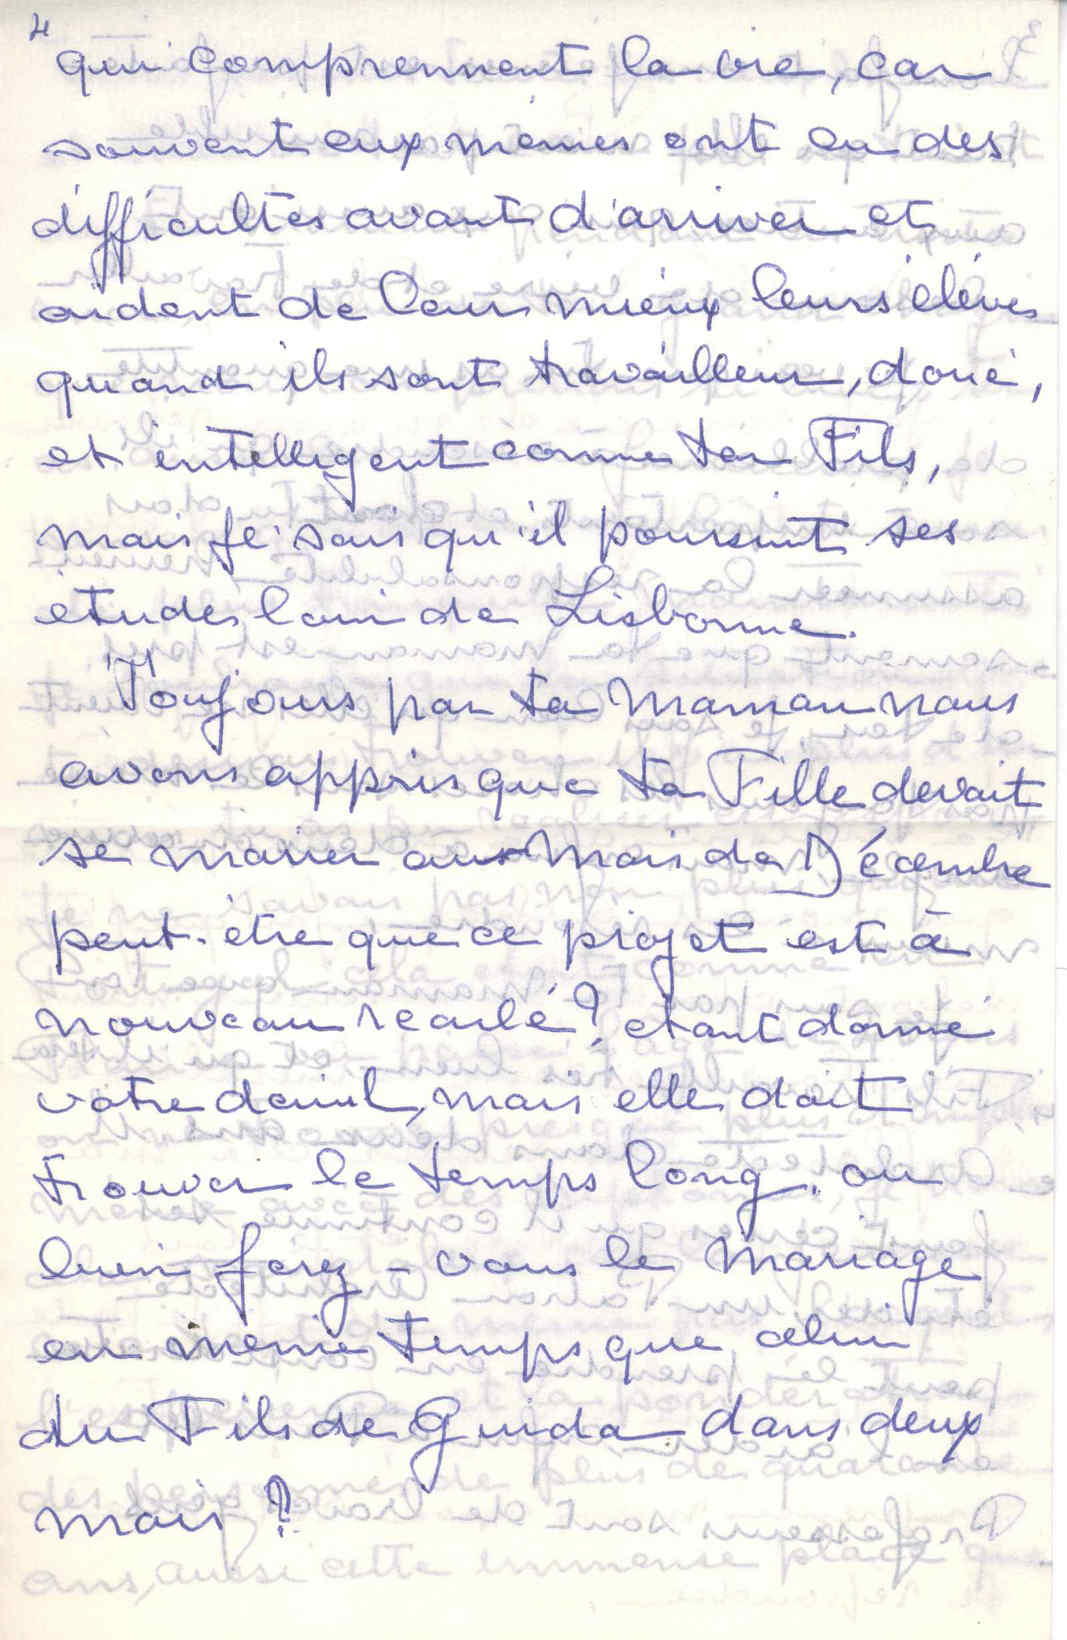 4
qui comprennent la vie, car
souvent eux mêmes ont eu des
difficultés avant d'arriver et
aident de leur mieux leurs élèves
quand ils sont travailleur, doué,
et intelligent comme ton Fils,
mais je sais qu'il poursuit ses
études loin de Lisbonne.
Toujours par ta Maman nous
avons appris que ta Fille devait
se marier au Mois de Décembre
peut-être que ce projet est à
nouveau reculé ?, étant donné
votre deuil, mais elle doit
trouver le temps long, ou
bien ferez-vous le Mariage
en même temps que celui
du Fils de Guida dans deux
mois ?